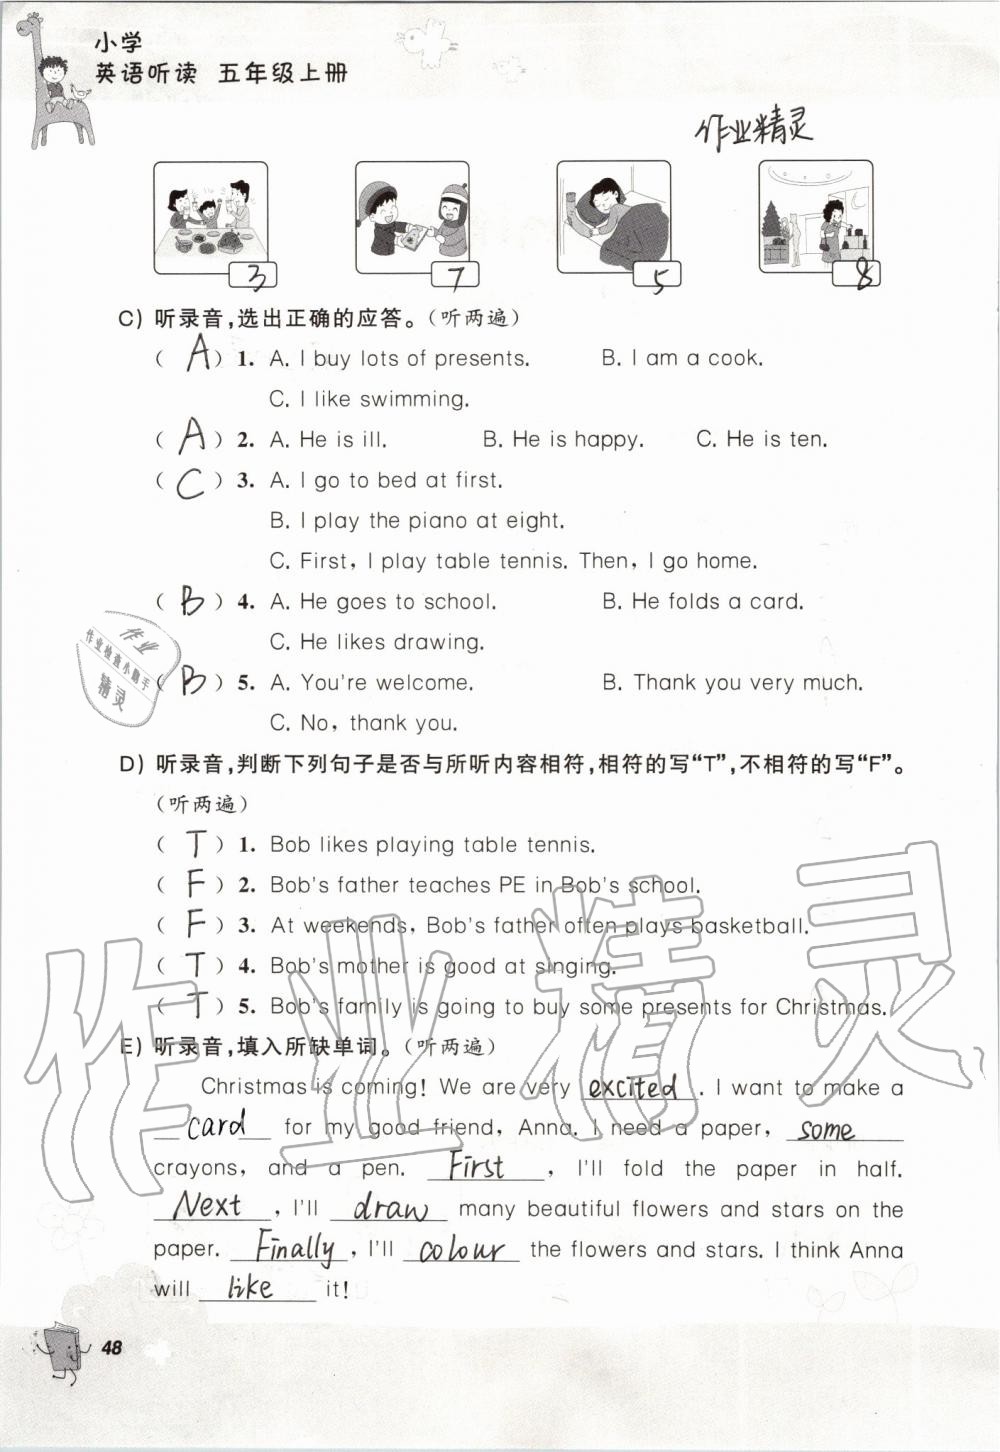 小学
英语听读 五年级上册
作业精灵
3 7 5 8
C) 听录音,选出正确的应答。(听两遍)
( A ) 1. A. I buy lots of presents. B. I am a cook.
C. I like swimming.
( A ) 2. A. He is ill. B. He is happy. C. He is ten.
( C ) 3. A. I go to bed at first.
B. I play the piano at eight.
C. First, I play table tennis. Then, I go home.
( B ) 4. A. He goes to school. B. He folds a card.
C. He likes drawing.
( B ) 5. A. You're welcome. B. Thank you very much.
C. No, thank you.
作业
作业检查小助手
精灵
D) 听录音,判断下列句子是否与所听内容相符,相符的写“T”,不相符的写“F”。
(听两遍)
( T ) 1. Bob likes playing table tennis.
( F ) 2. Bob's father teaches PE in Bob's school.
( F ) 3. At weekends, Bob's father often plays basketball.
( T ) 4. Bob's mother is good at singing.
( T ) 5. Bob's family is going to buy some presents for Christmas.
作业精灵
E) 听录音,填入所缺单词。(听两遍)
Christmas is coming! We are very excited . I want to make a
card for my good friend, Anna. I need a paper, some
crayons, and a pen. First , I'll fold the paper in half.
Next , I'll draw many beautiful flowers and stars on the
paper. Finally , I'll colour the flowers and stars. I think Anna
will like it!
48